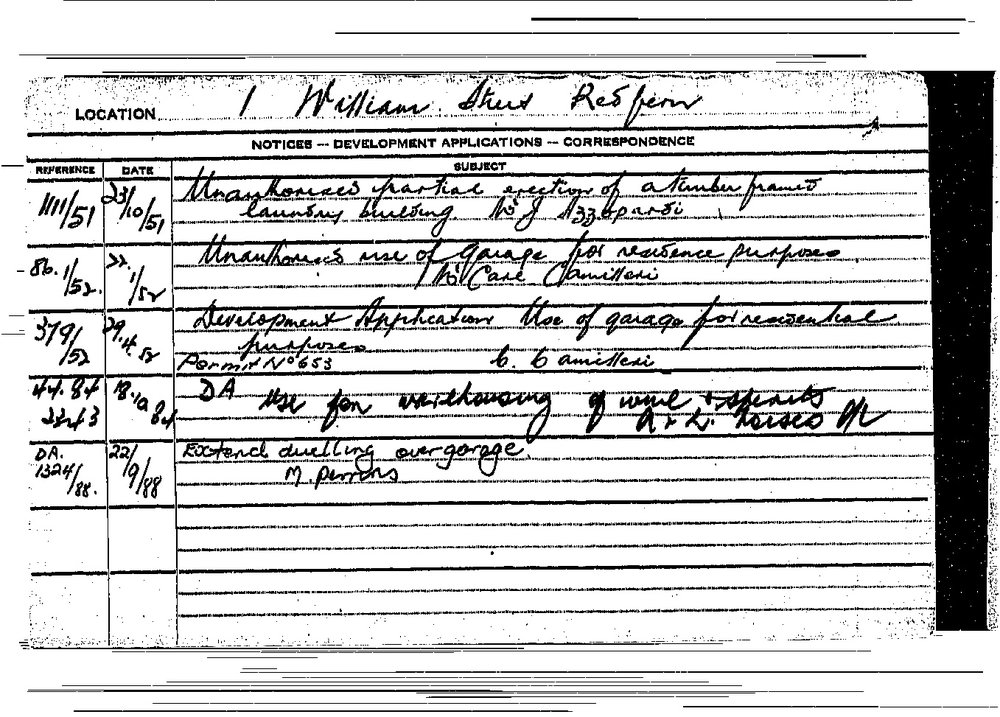 LOCATION 1 William Street Redfern
NOTICES -- DEVELOPMENT APPLICATIONS -- CORRESPONDENCE
REFERENCE DATE SUBJECT
1111/51 23/10/51 Unauthorised partial erection of a timber framed
laundry building J Azzopardi
86. 1/52. 22. 1/52 Unauthorised use of garage for residence purposes
Camilleri
379/52 29.4.52 Development Application Use of garage for residential
purposes
Permit No 653 C. Camilleri
44.84 18.10.84 DA Use for warehousing of wine & spirits
P/L
DA. 1324/88. 22/9/88 Extend dwelling over garage.
M. Perrons